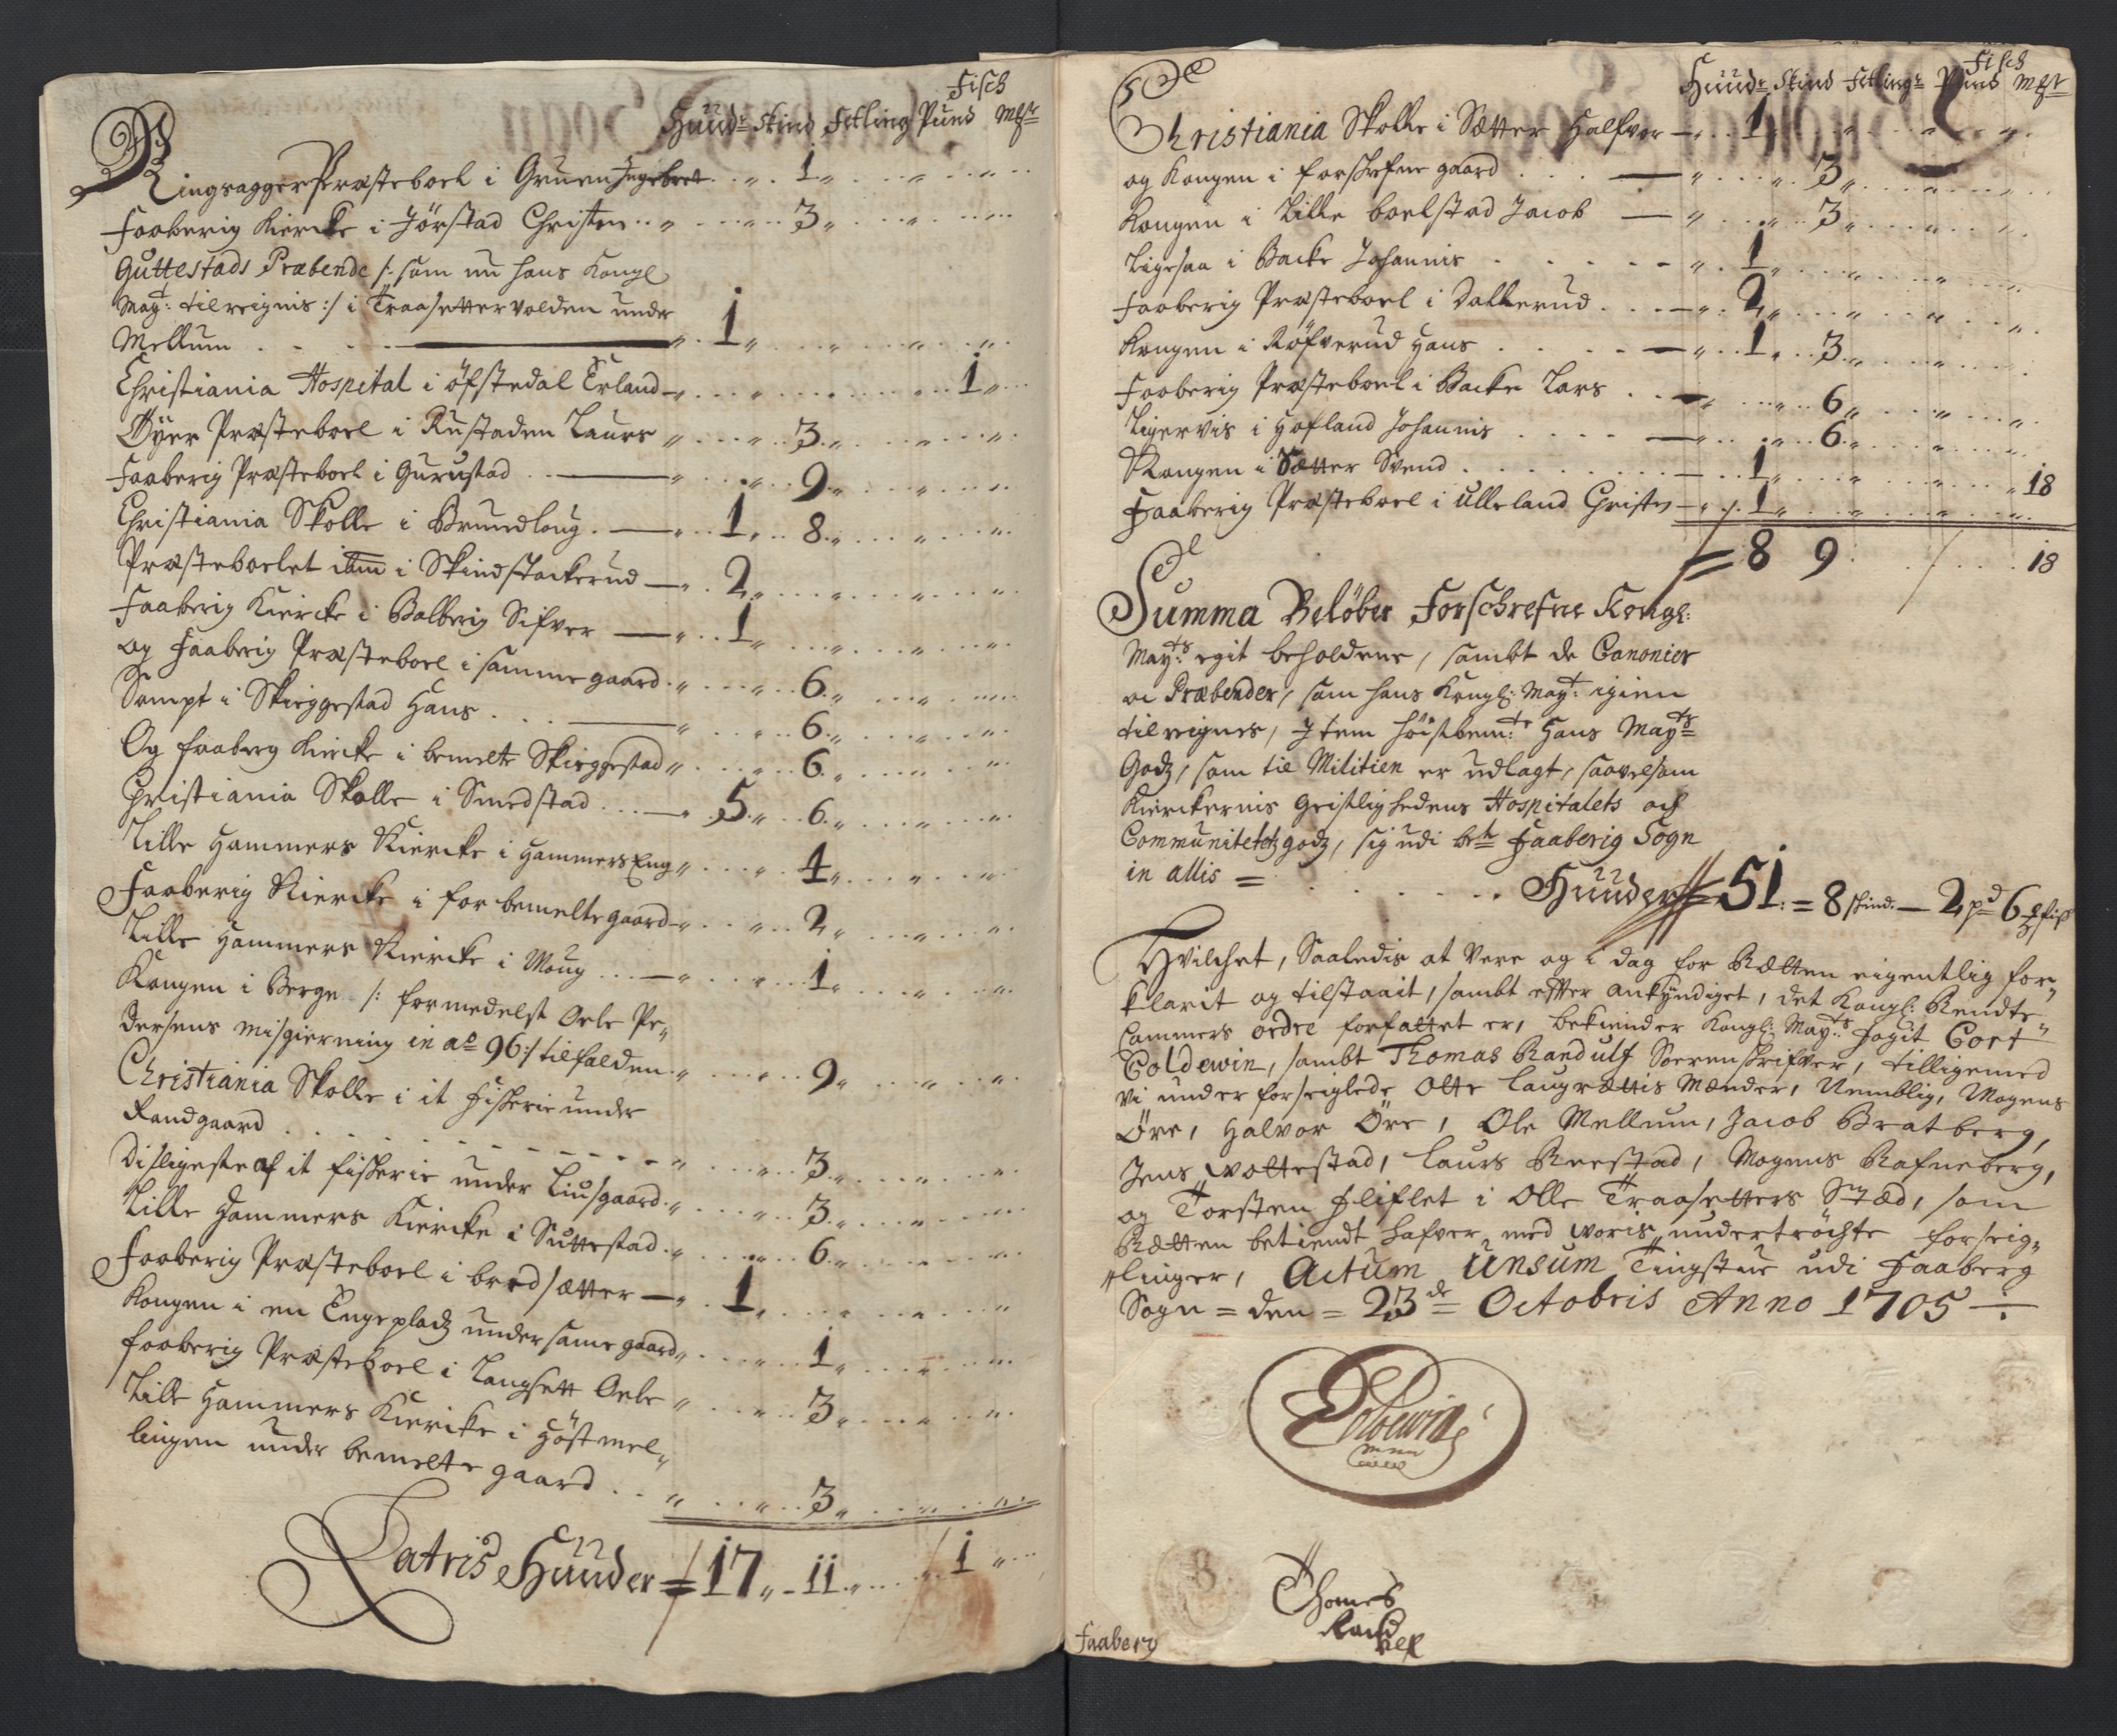 Fisch
Huudr Skind Fetling Pund Mkr
Ringsagger Præsteboel i Gruen Ingebret . . „ . 1 „ . . . „ . . „ . . „ . .
Faaberig Kiercke i Jörstad Christen . . „ . . . „ . . 3 „ . . . „ . . „ . .
Guttestads Præbende /: som nu hans Kongl
Mayt: tilreignis :/ i Traasettervolden under
Mellum . . . . „ . 1 „ . . . „ . . „ . . „ .
Christiania Hospital i öfstedal Erland „ . . . „ . . . „ . . . 1 „ . .
Öyer Præsteboel i Rustaden Laurs „ . . . „ . . 3 „ . . . „ . . „ .
Faaberig Præsteboel i Gurustad . . „ . . . „ . . 9 „ . . . „ . . „ .
Christiania Skolle i Brundloug . „ . . 1 „ . . 8 „ . . . „ . . „ .
Præsteboelet ibm i Skindstackerud „ . 2 „ . . . „ . . „ . . „ .
Faaberig Kiercke i Balberig Sifver „ . . 1 „ . . . „ . . „ . . „ .
og Faaberig Præsteboel i samme gaard „ . . . „ . . 6 „ . . . „ . . „ .
Sampt i Skieggestad Hans . . . „ . . . „ . . 6 „ . . . „ . . „ .
Og faaberg Kiercke i bemelte Skieggestad „ . . . „ . . 6 „ . . . „ . . „ .
Christiania Skolle i Smedstad . . . „ . 5 „ . . 6 „ . . . „ . . „ .
Lille Hammers Kiercke i Hammers Eng „ . . . „ . . 4 „ . . . „ . . „ .
Faaberig Kiercke i for bemelte gaard „ . . . „ . . 2 „ . . . „ . . „ .
Lille Hammers Kiercke i Moug . . . „ . . . „ . . 1 „ . . . „ . . „ .
Kongen i Berge /: formedelst Oele Pe„
dersens misgierning in ao 96 :/ tilfalden „ . . . „ . . 9 „ . . . „ . . „ .
Christiania Skolle i it Fischerie under
Randgaard . . . . „ . . . „ . . 3 „ . . . „ . . „ .
Disligeste af it fischerie under Liusgaard „ . . . „ . . 3 „ . . . „ . . „ .
Lille Hammers Kiercke i Suttestad „ . . . „ . . 6 „ . . . „ . . „ .
Faaberig Præsteboel i bredsætter „ . . 1 „ . . . „ . . „ . . „ .
Kongen i en Engepladz under same gaard „ . . . „ . . 1 „ . . . „ . . „ .
faaberig Præsteboel i Langsett Oele „ . . . „ . . 3 „ . . . „ . . „ .
Lille Hammers Kiercke i Höstmel„
lingen under bemelte gaard . . „ . . . „ . . 3 „ . . . „ . . „ .
Latris Huuder = 17 „ - 11 „ . . . . 1 „ . .
Fisch
Huudr Skind Fetlingr Pund Mkr
Christiania Skolle i Sætter Halfvor „ . . 1 „ . . . „ . . „ . . „ .
og Kongen i forschrefne gaard . . . „ . . . „ . . 3 „ . . . „ . . „ .
Kongen i Lille boelstad Jacob „ . . . „ . . 3 „ . . . „ . . „ .
Ligesaa i Backe Johannis . . . . „ . 1 „ . . . „ . . „ . . „ .
Faaberig Præsteboel i Dallerud . . . „ . 2 „ . . . „ . . „ . . „ .
Kongen i Röfverud Hans . . . . „ . . 1 „ . . 3 „ . . . „ . . „ .
Faaberig Præsteboel i Backe Lars . . „ . . . „ . . 6 „ . . . „ . . „ .
Ligervis i Hofland Johannis . . . . „ . . . „ . . 6 „ . . . „ . . „ .
Kongen i Sætter Svend . . . . . . 1 „ . . . „ . . „ . . „ 18
Faaberig Præsteboel i Ulleland Christen „ . . 1 „ . . . „ . . „ . . „ .
= 8 9 . . . . 18
Summa Belöber Forschrefne Kongl:
Mayts: egit beholdene, sambt de Canonier
oc Præbender, som hans Kongl: Mayt: igien
tilreignes, Item höistbemte Hans Mayts
Godz, som til Militien er udlagt, saavelsom
Kierckernis Geistlighedens Hospitalets och
Communitetetz godz, sig udi bte Faaberig Sogn
in allis = . . . . . . Huuder = 51 = 8 skind — 2 pd 6 fisch
Hvilchet, Saaledis at Vere og i dag for Rætten eigentlig for„
klarit og tilstaait, sambt efter ankyndiget, det Kongl: Rendte„
Cammers ordre forfattet er, bekiender Kongl: Mayts: Fogit Cort
Coldewin, sambt Thomas Randulf Sorenskrifver, tilligemed
vi underforseiglede Otte Laugrættis Mænder, Nemblig, Mogens
Öre, Halvor Öre, Ole Mellum, Jacob Bratberg,
Jens Wottestad, Laurs Reestad, Mogens Rafneberg,
og Torsten Fliflet i Olle Traasetters Stæd, som
Rætten betiendt hafver, med voris undertröchte forseig„
„linger, Actum Unsum Tingstue udi Faaberg
Sogn = den = 23de = Octobris Anno 1705 —
Coldewin
Thomes
Randulf
Faaberg